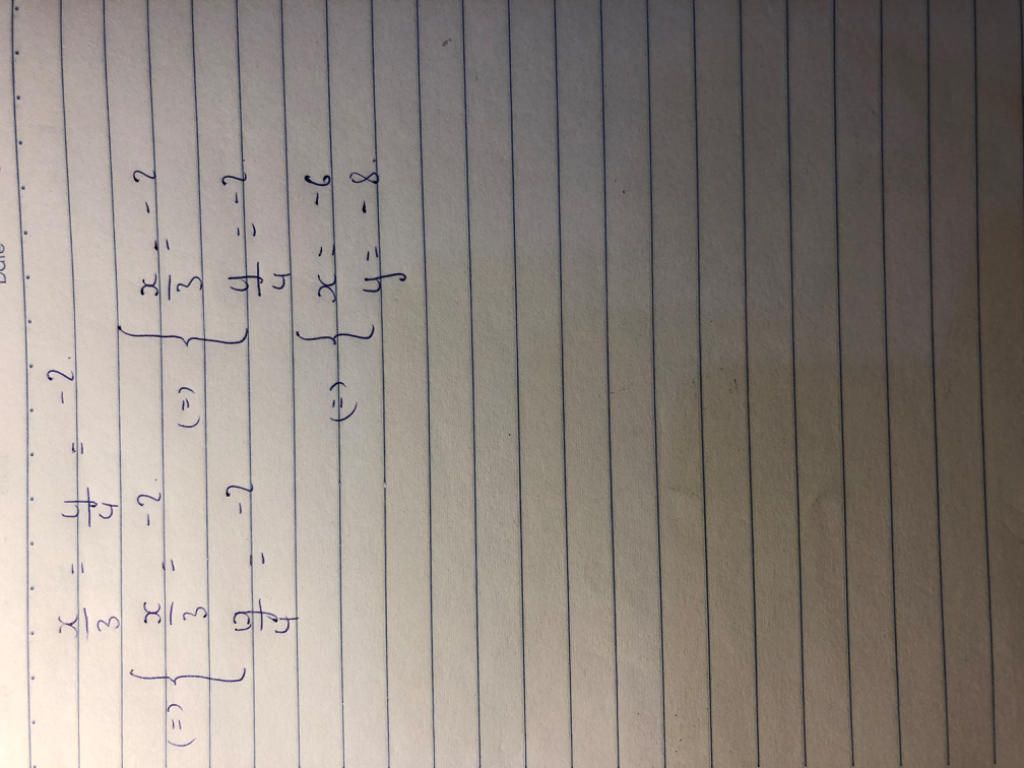 Date
x/3 = y/4 = -2.
(=) { x/3 = -2. (=) { x/3 = -2
y/4 = -2 y/4 = -2
(=) { x = -6
y = -8.